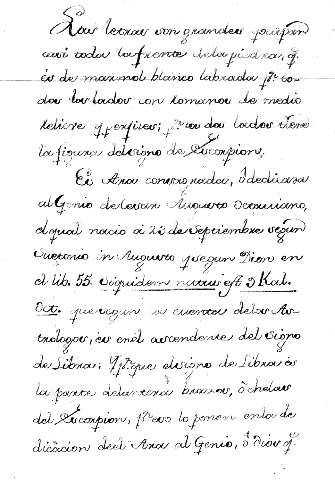 Las letras son grandes, y ocupan
casi toda la frente de la piedra, q.
es de marmol blanco labrada p.r to-
dos los lados con Romanos de medio
Relieve y perfiles; p.r los dos lados tiene
la figura del signo de Escorpion.
Es Ara consagrada, ô dedicada
al Genio de Cesar Augusto Octaviano,
el qual nació a 23 de Septiembre segun
Suetonio in Augusto y segun Dion en
el lib. 55. Siquidem natus est 9 Kal.
Oct. que segun la cuenta de los As-
trologos, es en el ascendente del signo
de Libra; y p.r que el signo de Libra es
la parte delantera brazos, ô chelas
del Escorpion, p.r eso lo ponen en la de
dicacion de el Ara al Genio, ô Dios q.e